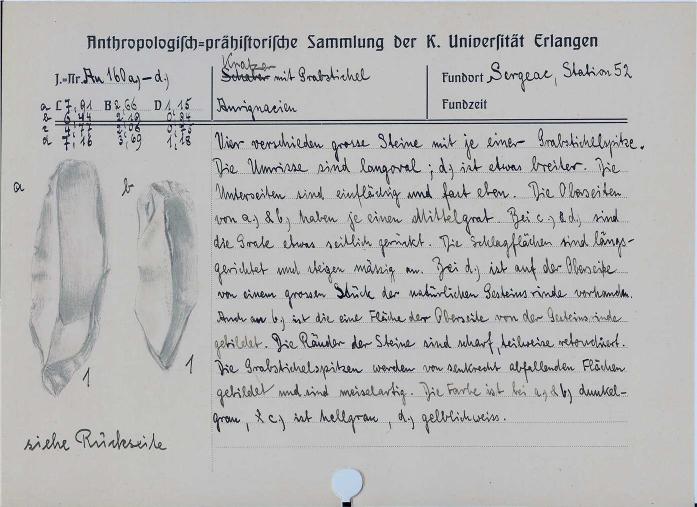 Anthropologisch=prähistorische Sammlung der K. Universität Erlangen
J.=Nr. An 160 a,-d,
Kratzer
Schaber mit Grabstichel
Aurignacien
Fundort Sergeac, Station 52
Fundzeit
a L 7,91 B 2,66 D 1,15
b 6,44 2,19 0,84
c 4,77 2,08 0,75
d 7,16 3,69 1,18
Vier verschieden grosse Steine mit je einer Grabstichelspitze.
Die Umrisse sind langoval; d, ist etwas breiter. Die
Unterseiten sind einflächig und fast eben. Die Oberseiten
von a, & b, haben je einen Mittelgrat. Bei c, & d, sind
die Grate etwas seitlich gerückt. Die Schlagflächen sind längs-
gerichtet und steigen mässig an. Bei d, ist auf der Oberseite
von einem grossen Stück der natürlichen Gesteinsrinde vorhanden.
Auch an b, ist die eine Fläche der Oberseite von der Gesteinsrinde
gebildet. Die Ränder der Steine sind scharf, teilweise retouchiert.
Die Grabstichelspitzen werden von senkrecht abfallenden Flächen
gebildet und sind meiselartig. Die Farbe ist bei a, & b, dunkel-
grau, & c, ist hellgrau, d, gelblichweiss.
a
b
1
1
siehe Rückseite